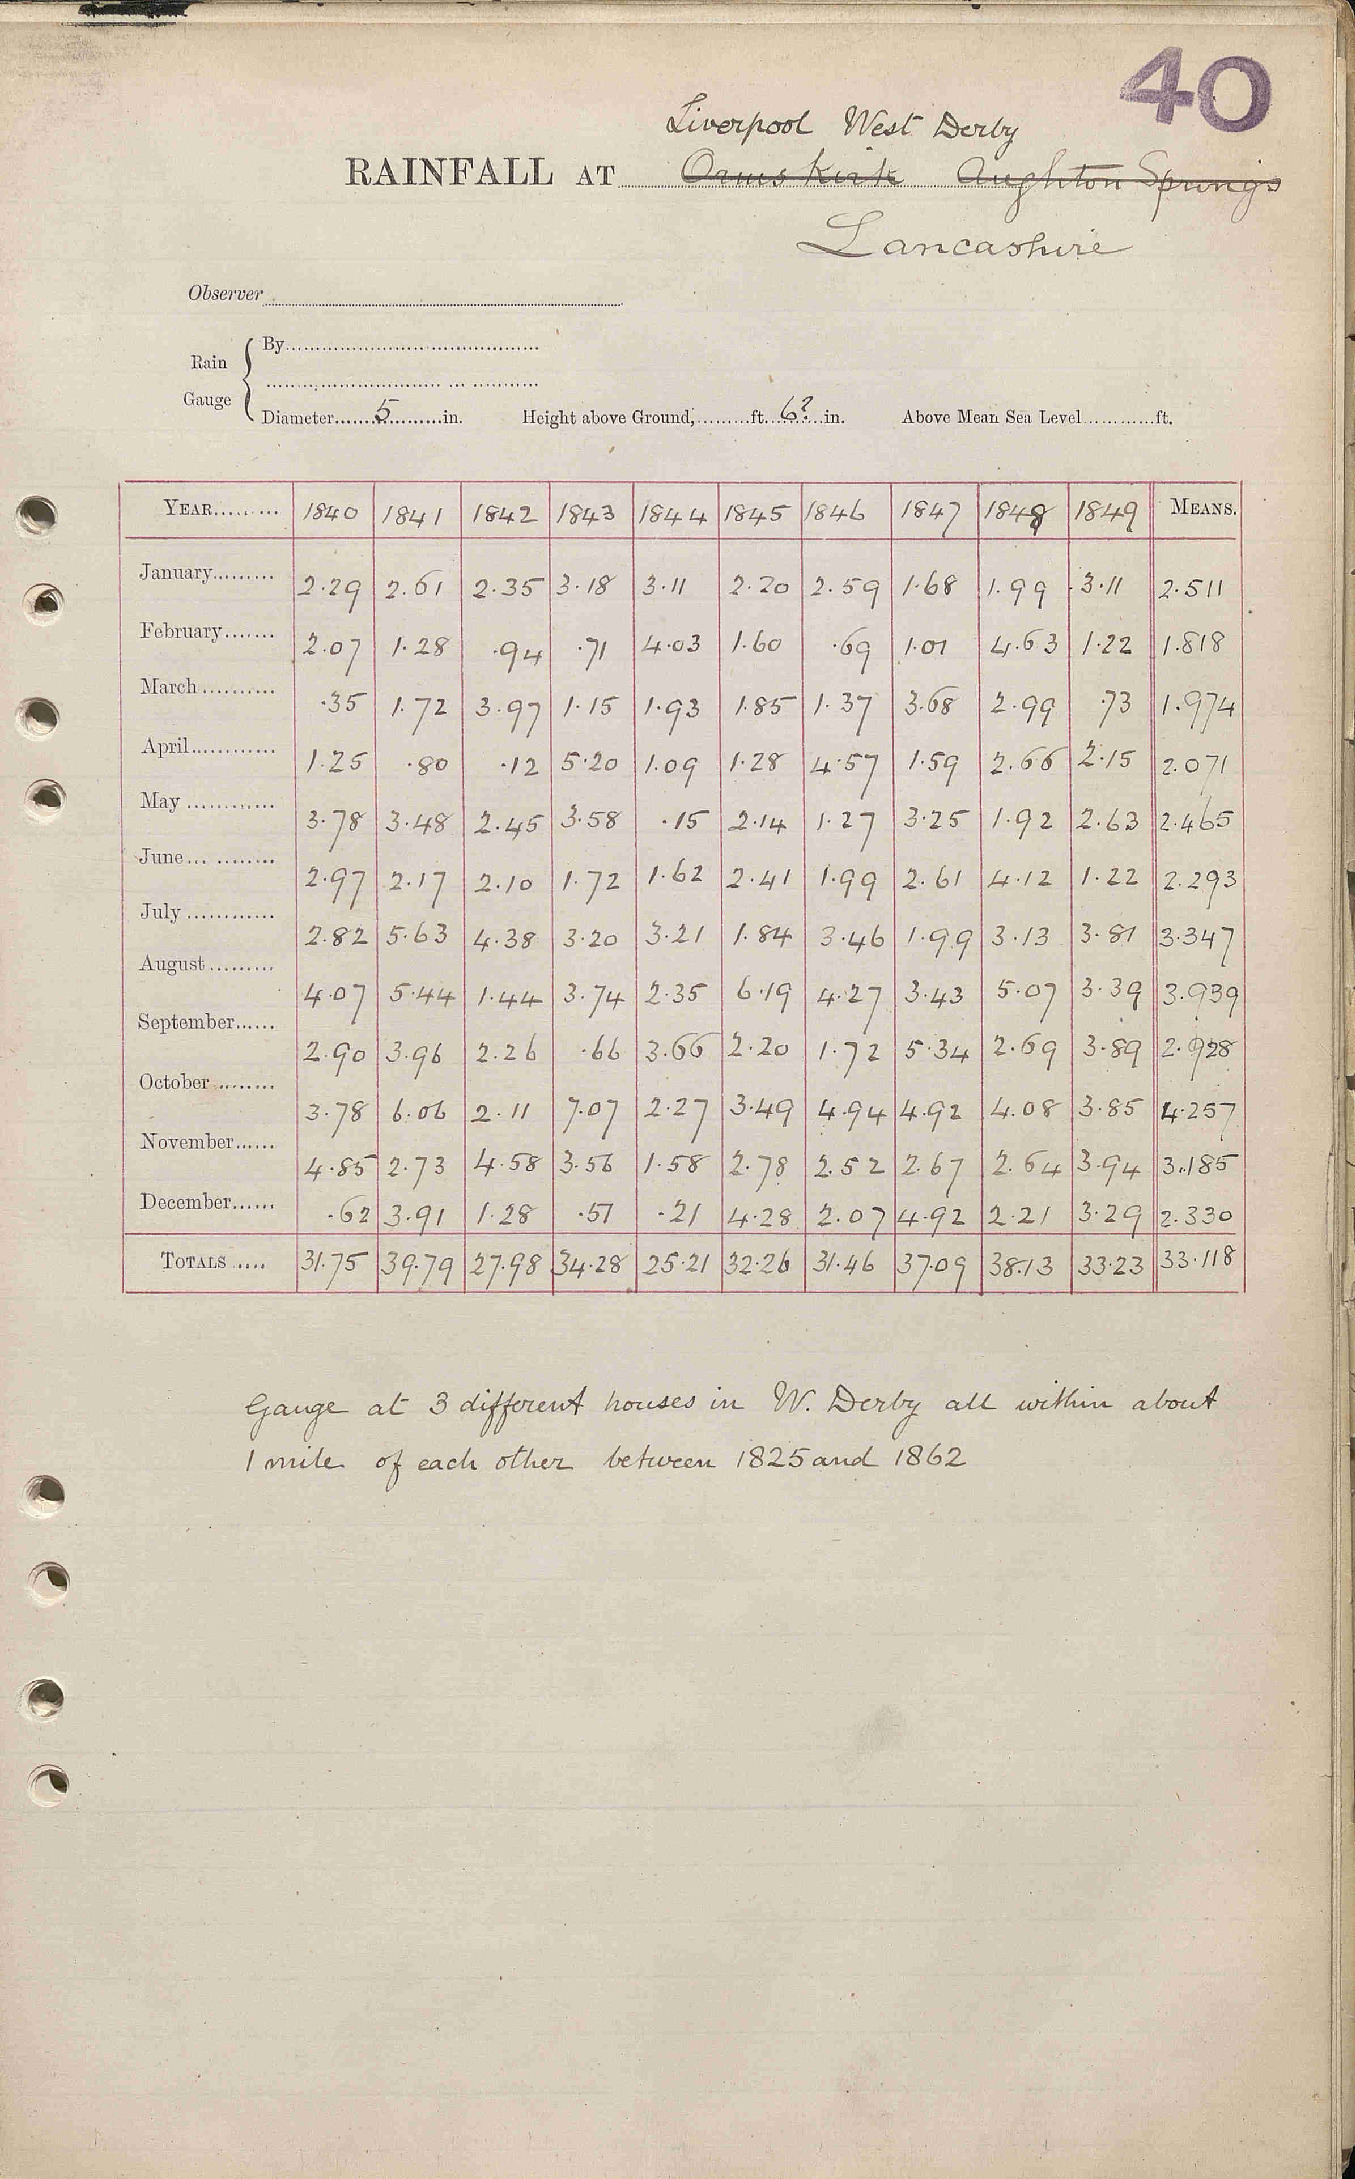 40
Liverpool West Derby
RAINFALL AT Ormskirk Aughton Springs
Lancashire
Observer
Rain Gauge
By
Diameter 5 in. Height above Ground, ft. 6? in. Above Mean Sea Level ft.
YEAR 1840 1841 1842 1843 1844 1845 1846 1847 1848 1849 MEANS.
January 2.29 2.61 2.35 3.18 3.11 2.20 2.59 1.68 1.99 3.11 2.511
February 2.07 1.28 .94 .71 4.03 1.60 .69 1.01 4.63 1.22 1.818
March .35 1.72 3.97 1.15 1.93 1.85 1.37 3.68 2.99 .73 1.974
April 1.25 .80 .12 5.20 1.09 1.28 4.57 1.59 2.66 2.15 2.071
May 3.78 3.48 2.45 3.58 .15 2.14 1.27 3.25 1.92 2.63 2.465
June 2.97 2.17 2.10 1.72 1.62 2.41 1.99 2.61 4.12 1.22 2.293
July 2.82 5.63 4.38 3.20 3.21 1.84 3.46 1.99 3.13 3.81 3.347
August 4.07 5.44 1.44 3.74 2.35 6.19 4.27 3.43 5.07 3.39 3.939
September 2.90 3.96 2.26 .66 3.66 2.20 1.72 5.34 2.69 3.89 2.928
October 3.78 6.06 2.11 7.07 2.27 3.49 4.94 4.92 4.08 3.85 4.257
November 4.85 2.73 4.58 3.56 1.58 2.78 2.52 2.67 2.64 3.94 3.185
December .62 3.91 1.28 .51 .21 4.28 2.07 4.92 2.21 3.29 2.330
TOTALS 31.75 39.79 27.98 34.28 25.21 32.26 31.46 37.09 38.13 33.23 33.118
Gauge at 3 different houses in W. Derby all within about
1 mile of each other between 1825 and 1862